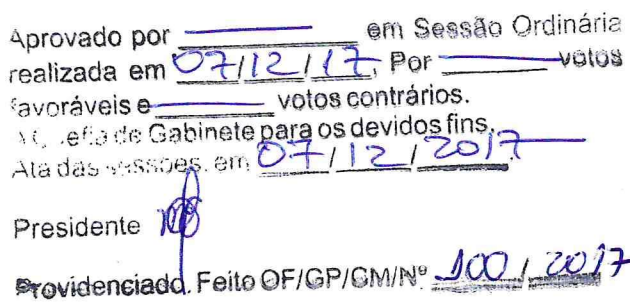 Aprovado por em Sessão Ordinária
realizada em 07/12/17, Por votos
favoráveis e votos contrários.
de Gabinete para os devidos fins.
Ata das sessões, em 07/12/2017
Presidente
Providenciado. Feito OF/GP/CM/Nº 100/2017